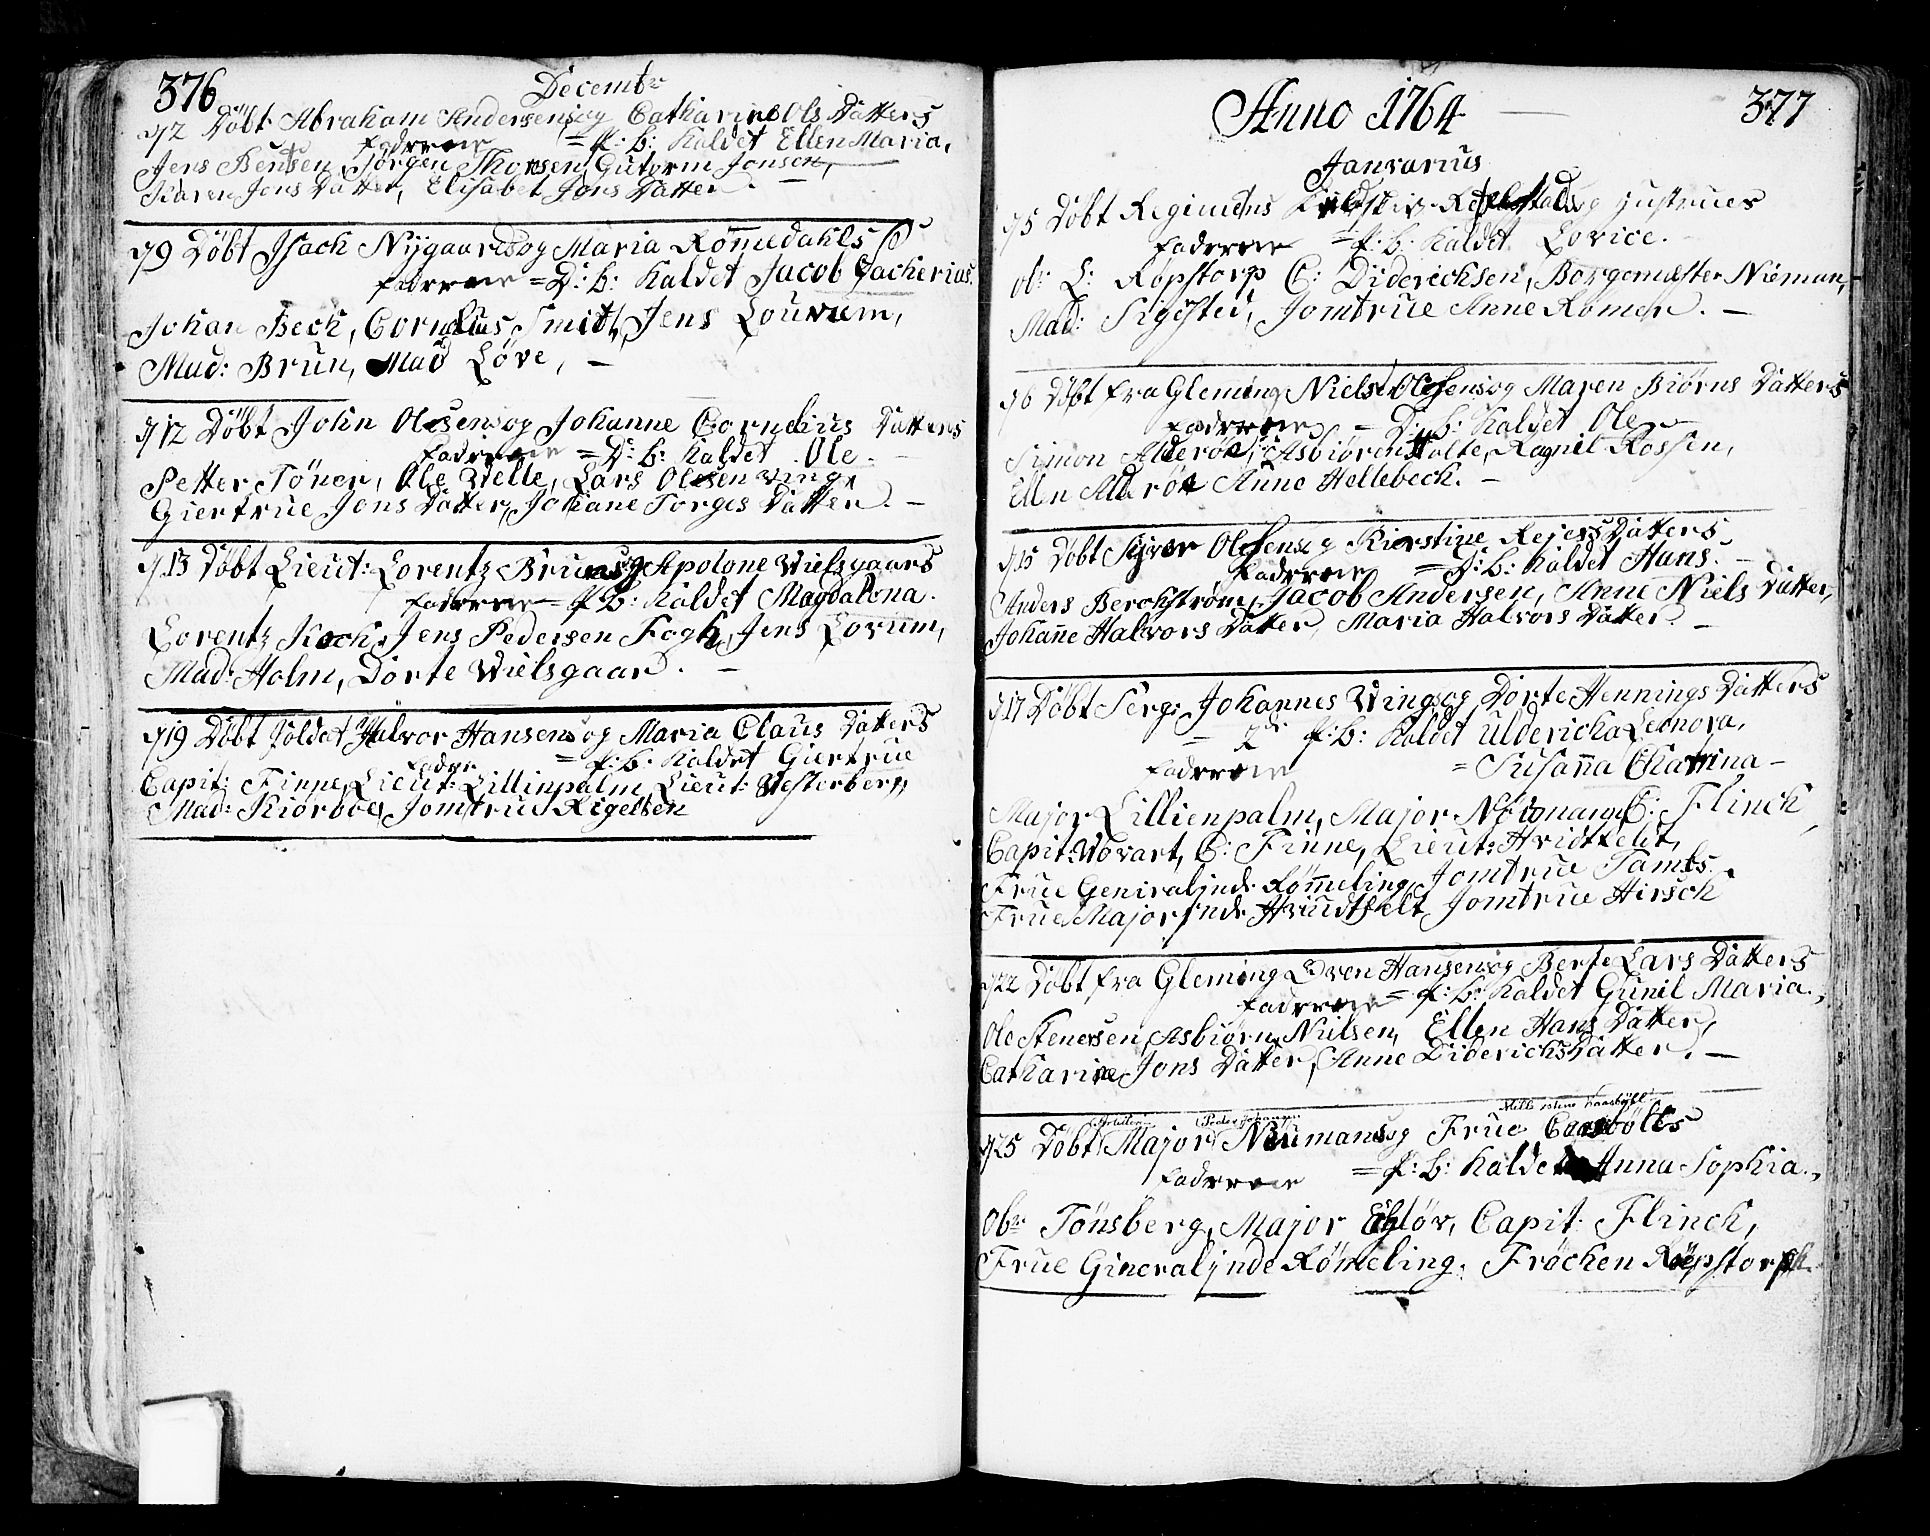 376
Decembr
72 Döbt Abraham Andersens og Catharine Ols Datters
Faderne = P: b: Kaldet Ellen Maria,
Jens Bentsen, Jörgen Thorsen, Gutorm Jonsen,
Karen Jens Datter, Elisabet Jons Datter. —
79 Döbt Isach Nygaards og Maria Römedahls
Fadrene = D: b: Kaldet Jacob Zacherias.
Johan Bech, Cornelius Smith, Jens Louvum,
Mad: Brun, Mad Löve, —
712 Döbt John Olesens og Johanne Cornelius Datters
Fadrene = D: b: Kaldet Ole. —
Petter Töner, Ole Velle, Lars Olesen Ving,
Giertrue Jons Datter, Johane Torges Datter. —
713 Döbt Lieut: Lorentz Bruuns og Apolone Wielsgaars
Fadrene = P: b: Kaldet Magdalena.
Lorentz Koch, Jens Pedersen Fogh, Jens Lovum,
Mad: Holm, Dorte Wielsgaar. —
719 Döbt Soldat Halvor Hansens og Maria Claus Datters
Fadre = P: b: Kaldet Giertrue
Capit: Finne, Lieut: Lillinpalm, Lieut: Westerberg,
Mad: Kiörboe, Jomtrue Rigelsen
377
Anno 1764 —
Janvarius
75 Döbt Regiments og Justrues
Fadrene = P: b: Kaldet Lovice. —
obr L: Röpstorp C: Diderichsen, Borgemester Nieman,
Mad: Sigsted, Jomtrue Anne Römer. —
76 Döbt fra Gleming Niels Olesens og Maren Biörns Datters
Fadrene = D: b: Kaldet Ole —
Simon Alderön, Asbiören Holte, Ragnil Rossen,
Ellen Alderön Anne Hellebech. —
715 Döbt Siver Olesens og Kierstine Rejers Datters
Fadrene = P: b: Kaldet Hans. —
Anders Berchström, Jacob Andersen, Anne Niels Datter,
Johanne Halvors Datter, Maria Halvors Datter. —
717 Döbt Serg: Johannes Vings og Dorte Hennings Datters
= 2de P: b: Kaldet Uldericka Leonora,
Fadrene = Susanna Chatrina —
Major Lillienpalm, Major Neümann, C: Flinck,
Capit: Wovart, C: Finne, Lieut: Hvidtfelt,
Frue Generalinde Römeling, Jomtrue Tambs.
Frue Majorinde Hviidtfelt, Jomtrue Hirsch
722 Döbt fra Gleming Even Hansens og Berte Lars Datters
Fadrene = P: b: Kaldet Gunil Maria.,
Ole Stenersen, Asbiörn Nielsen, Ellen Hans Datter,
Catharine Jons Datter, Anne Diderichs Datter. —
725 Döbt Major Neumans og Frue Caasbölls
Fadrene = P: b: Kaldet Anna Sophia.,
Obr Tönsberg, Major Eglöv, Capit: Flinck,
Frue Gineralinde Römeling. Fröchen Röpstorph.